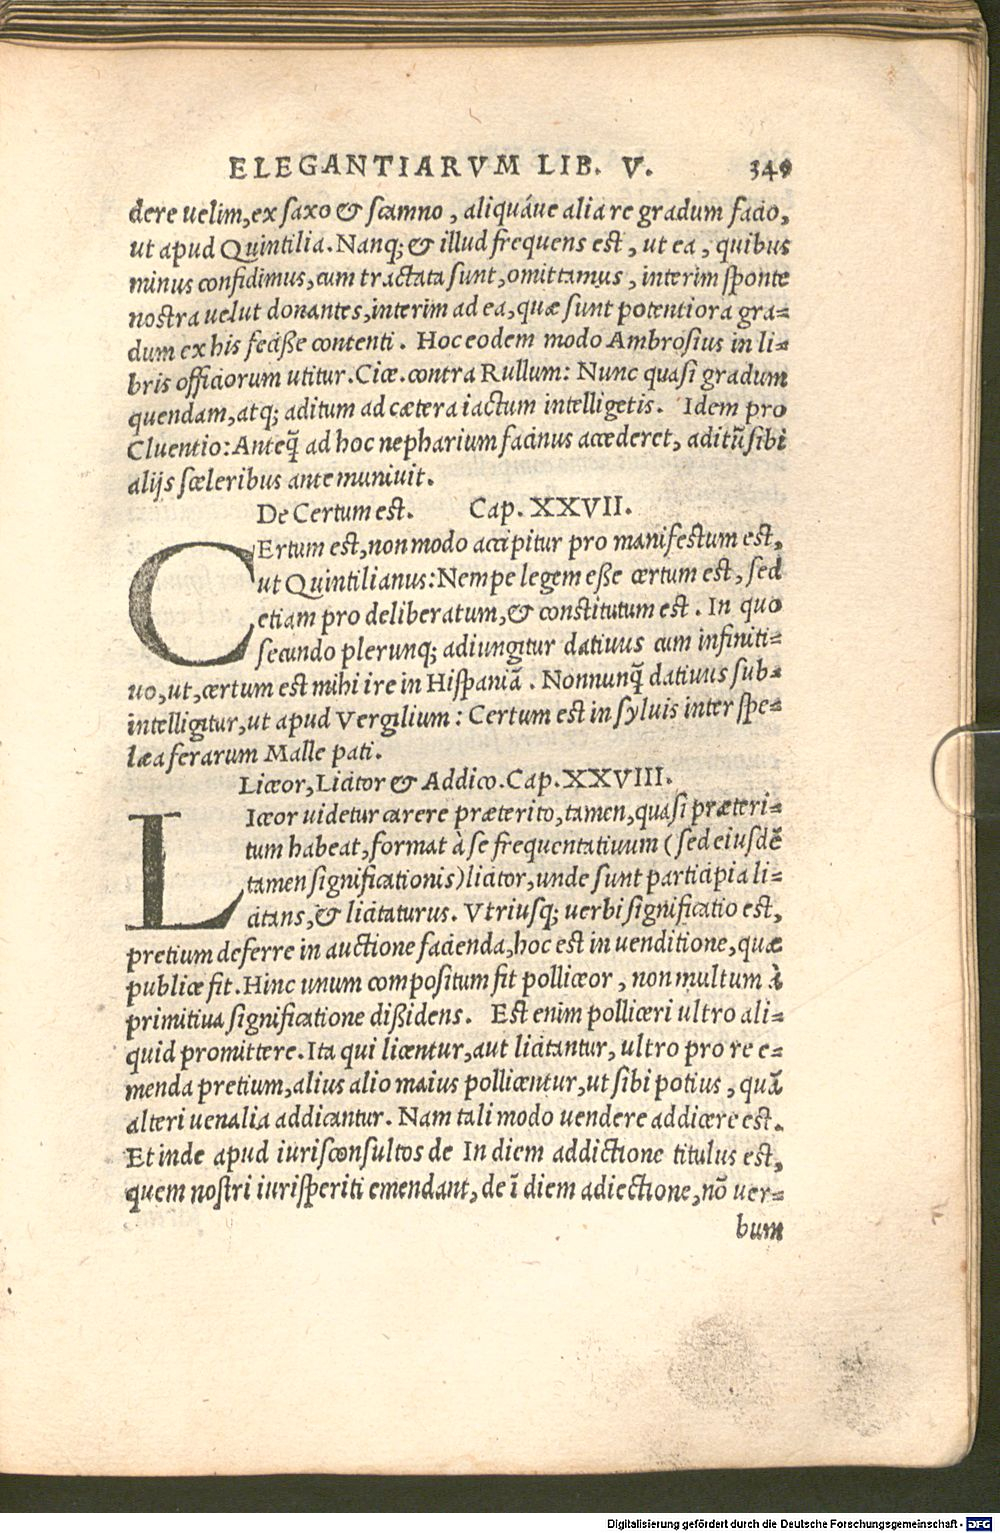 ELEGANTIARVM LIB. V. 349
dere uelim, ex saxo & scamno, aliquáue alia re gradum facio,
ut apud Quintilia. Nanq; & illud frequens est, ut ea, quibus
minus confidimus, cum tractata sunt, omittamus, interim sponte
nostra uelut donantes, interim ad ea, quæ sunt potentiora gra=
dum ex his fecisse contenti. Hoc eodem modo Ambrosius in li=
bris officiorum utitur. Cice. contra Rullum: Nunc quasi gradum
quendam, atq; aditum ad cætera iactum intelligetis. Idem pro
Cluentio: Anteq̃ ad hoc nepharium facinus accederet, aditũ sibi
alijs sceleribus ante muniuit.
De Certum est. Cap. XXVII.
CErtum est, non modo accipitur pro manifestum est,
ut Quintilianus: Nempe legem esse certum est, sed
etiam pro deliberatum, & constitutum est. In quo
secundo plerunq; adiungitur datiuus cum infiniti=
uo, ut, certum est mihi ire in Hispaniã. Nonnunq̃ datiuus sub=
intelligitur, ut apud Vergilium: Certum est in syluis inter spe=
læa ferarum Malle pati.
Liceor, Licitor & Addico. Cap. XXVIII.
LIceor uidetur carere præterito, tamen, quasi præteri=
tum habeat, format à se frequentatiuum (sed eiusdẽ
tamen significationis) licitor, unde sunt participia li=
citans, & licitaturus. Vtriusq; uerbi significatio est,
pretium deferre in auctione facienda, hoc est in uenditione, quæ
publice fit. Hinc unum compositum fit polliceor, non multum à
primitiua significatione dissidens. Est enim polliceri ultro ali=
quid promittere. Ita qui licentur, aut licitantur, ultro pro re e=
menda pretium, alius alio maius pollicentur, ut sibi potius, quã
alteri uenalia addicantur. Nam tali modo uendere addicere est.
Et inde apud iurisconsultos de In diem addictione titulus est,
quem nostri iurisperiti emendant, de ĩ diem adiectione, nõ uer=
bum
Digitalisierung gefördert durch die Deutsche Forschungsgemeinschaft - DFG